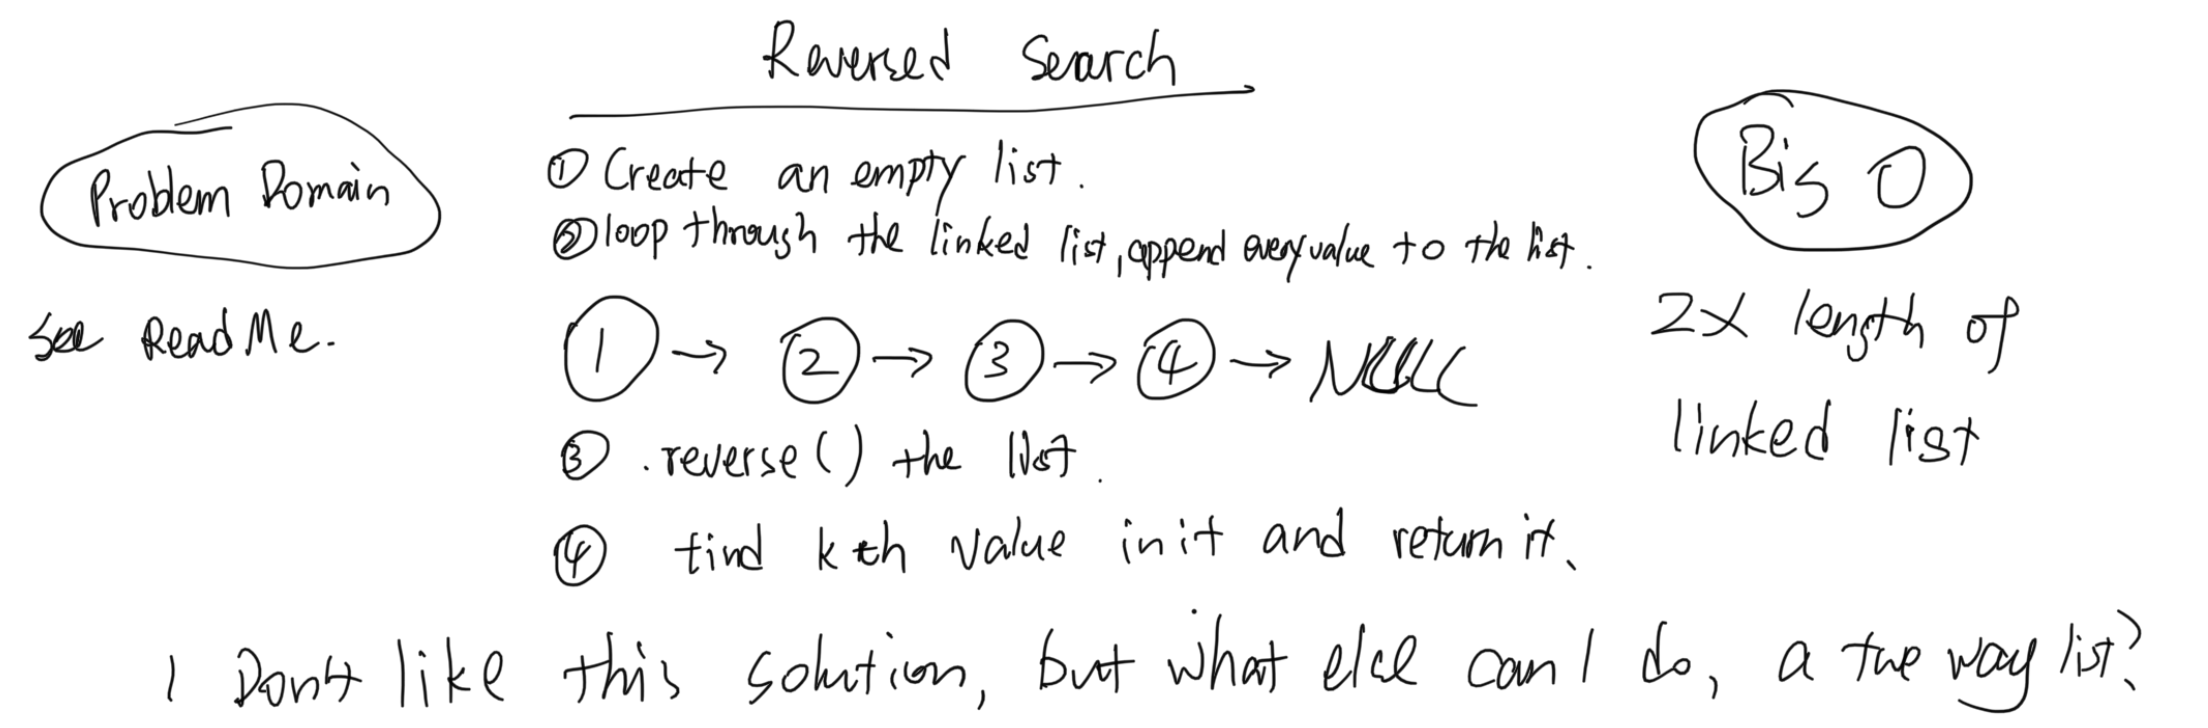 Reversed Search
Problem Domain
See ReadMe.
① Create an empty list.
② loop through the linked list, append every value to the list.
1 → 2 → 3 → 4 → NULL
③ .reverse() the list.
④ find kth value in it and return it.
Big O
2x length of
linked list
I Don't like this solution, but what else can I do, a two way list?